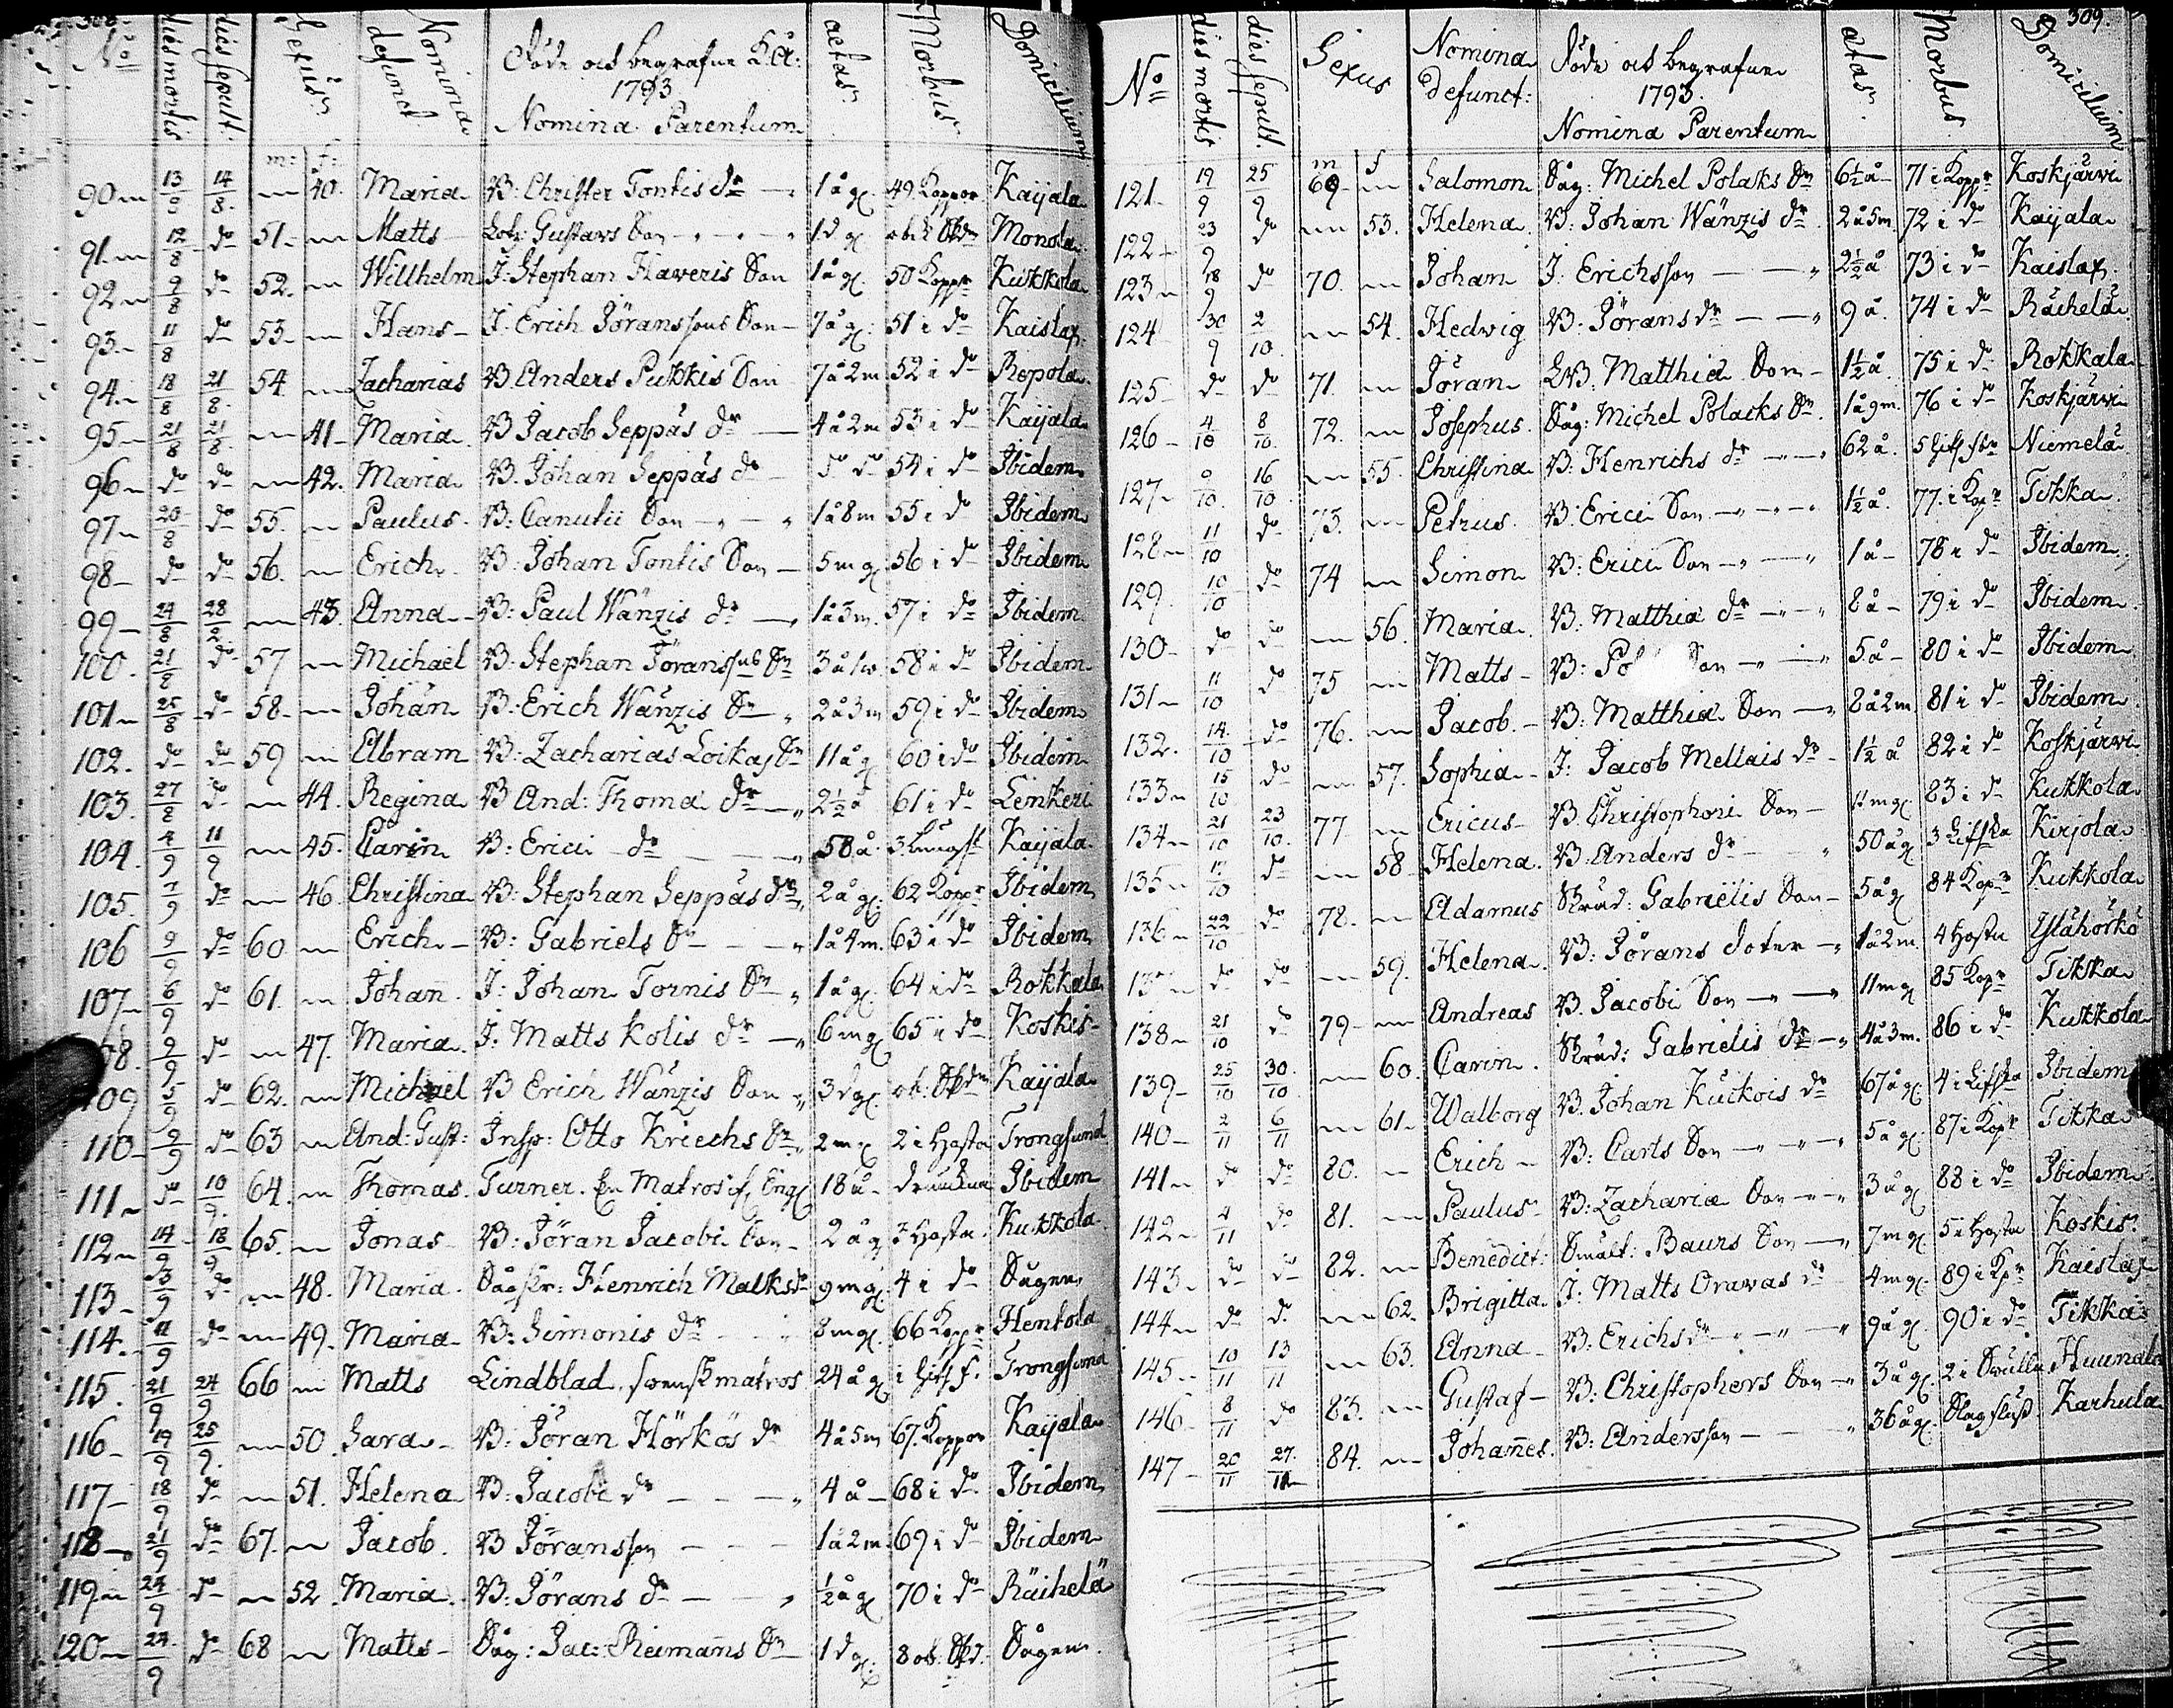 308.
No dies mortis dies sepult. Sexus Nomina defunct. Döde och begrafne På: 1793 Nomina Parentum aetas Morbus Domicilium
m: f:
90 13/8 14/8. 40. Maria B: Christer Tontis dr 1 å g. 49. Koppor Kaijala
91. 12/8 do 51. Matts Gustavs Son 1 d g. Monola
92 9/8 do 52. Willhelm I: Stephan Haveris Son 1 å g. 50 Koppr Kukkola
93. 11/8 do 53. Hans I: Erich Jöranssons Son 7 å g. 51 i do Kaislax
94. 18/8 21/8. 54. Zacharias B Anders Pukkis Son 7 å 2 m 52 i do Repola
95 21/8 21/8. 41 Maria B Jacob Seppäs dr 4 å 2 m 53 i do Kaijala
96 do do 42. Maria B. Johan Seppäs dr do do 54 i do Ibidem
97 20/8 do 55. Paulus B: Canutii Son 1 å 8 m 55 i do Ibidem
98 do do 56. Erich B: Johan Tontis Son 5 m g 56 i do Ibidem
99 24/8 28/8 43. Anna B: Paul Wänzis dr 1 å 3 m. 57 i do Ibidem
100. 21/8 do 57 Michaël B: Stephan Jöransons Sn 3 å 58 i do Ibidem
101 25/8 do 58 Johan B: Erich Wänzis Sn 2 å 3 m 59 i do Ibidem
102. do do 59 Abram B: Zacharias Loikas Sn 11 å g 60 i do Ibidem
103. 27/8 do 44. Regina B And: Thomæ dr 2½ å 61 i do Lenkeri
104. 4/9 11/9 45. Carin B: Erici dr 58 å. 3. Lungst Kaijala
105. 7/9 do 46 Christina B: Stephan Seppäs dr 2 å g. 62 Koppr Ibidem
106 9/9 do 60 Erich B: Gabriels Sn 1 å 4 m. 63 i do Ibidem
107 6/9 do 61. Johan I: Johan Tornis Sn 1 å g. 64 i do Rokkala
108. 9/9 do 47. Maria I: Matts Kolis dr 6 m g 65 i do Koskis
109 5/9 do 62. Michael B Erich Wänzis Son 3 d g. ob. Kaijala
110 9/9 do 63 And: Gust: Insp: Otto Kriechs Sn 2 m g 2 i Hosta Trongsund
111 do 10/9. 64. Thomas Turner. En Matros if. Engl 18 å druckna Ibidem
112 14/9 18/9 65. Jonas B: Jöran Jacobi Son 2 å g 3 Hosta Kukkola
113 13/9 do 48. Maria Sågskr: Henrich Malks dr 9 m g. 4 i do Sågen
114. 11/9 do 49. Maria B: Simonis dr 8 m g. 66 Koppr Hentola
115. 21/9 24/9 66 Matts Lindblad, svensk matros 24 å g i Trongsund
116 19/9 25/9. 50 Sara B: Jöran Hörkös dr 4 å 5 m 67. Koppor Kaijala
117 18/9 do 51. Helena B: Jacobi dr 4 å 68 i do Ibidem
118 21/9 do 67. Jacob B Jöransson 1 å 2 m 69 i do Ibidem
119 24/9 do 52 Maria B: Jörans dr ½ å g 70 i do Räihelä
120 24/9 do 68 Matts Såg: Jac: Reimans Sn 1 d g. 8 ob. Sågen
309.
No dies mortis dies sepult. Sexus Nomina defunct: Döde och begrafne 1793. Nomina Parentum ætas Morbus Domicilium
m f
121 19/9 25/9 69 Salomon Såg: Michel Polaks Sn 6½ å 71 i Koppr Koskjärvi
122 23/9 do 53. Helena B: Johan Wänzis dr 2 å 5 m. 72 i do Kaijala
123 18/9 do 70. Johan I: Erichsson 2½ å 73 i do Kaislax
124 30/9 2/10. 54. Hedvig B: Jörans dr 9 å. 74 i do Räihelä
125 do do 71. Jöran LB: Matthiæ Son 1½ å 75 i do Rokkala
126 4/10 8/10. 72. Josephus Såg: Michel Polacks Sn 1 å 9 m. 76 i do Koskjärvi
127 9/10. 16/10. 55. Christina B: Henrichs dr 62 å. 5 Niemelä
128 11/10 do 73. Petrus B: Erici Son 1½ å. 77. i Kopr Tikka
129. 10/10 do 74 Simon B: Erici Son 1 å 78 i do Ibidem
130 do do 56. Maria B: Matthiæ dr 8 å 79 i do Ibidem
131 11/10 do 75 Matts B: Son 5 å 80 i do Ibidem
132. 14/10 do 76. Jacob B: Matthiæ Son 8 å 2 m 81 i do Ibidem
133 15/10 do 57. Sophia I: Jacob Mellais dr 1½ å 82 i do Koskjärvi
134 21/10 23/10. 77 Ericus B Christophori Son m g. 83 i do Kukkola
135 17/10 do 58 Helena B Anders dr 50 å g 3 Kirjola
136 22/10 do 78. Adamus Skräd: Gabrielis Son 5 å g 84 Kopr Kukkola
137 do do 59. Helena B: Jörans doter 1 å 2 m. 4 Hosta Ylähörkö
138 21/10 do 79 Andreas B. Jacobi Son 11 m g 85 Kopr Tikka
139 25/10 30/10 60. Carin Skräd: Gabrielis dr 4 å 3 m. 86 i do Kukkola
140 2/11 6/11 61 Walborg B. Johan Kuckois dr 67 å g 4 i Ibidem
141 do do 80. Erich B: Carls Son 5 å g. 87 i Kopr Tikka
142 4/11 do 81. Paulus B: Zachariæ Son 3 å g 88 i do Ibidem
143 do do 82. Benedict: Smält: Baurs Son 7 m g. 5 i Hosta Koskis
144 do do 62. Brigitta I: Matts Orawas dr 4 m g. 89 i Kpr Kaislax
145 10/11 13/11 63. Anna B: Erichs dr 9 å g. 90 i do Tikka
146 8/11 do 83. Gustaf B: Christophers Son 3 å g. 2 i Svulln Huunala
147 20/11 27/11 84. Johannes. B: Andersson 36 å g. Slagfluss Karhula